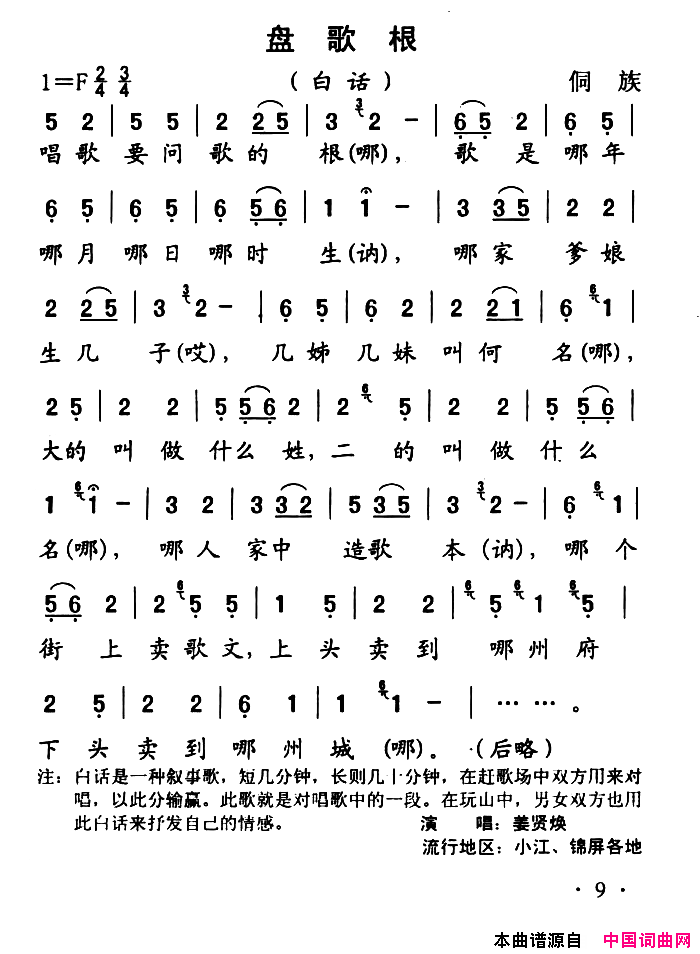 盘歌根
1=F 2/4 3/4 （白话） 侗族
5 2 | 5 5 | 2 2 5 | 3 3 2 － | 6 5 2 | 6 5 |
唱歌要问歌的 根(哪)， 歌 是 哪年
6 5 | 6 5 | 6 5 6 | 1 1 － | 3 3 5 | 2 2 |
哪月哪日哪时 生(讷)， 哪家 爹娘
2 2 5 | 3 3 2 － | 6 5 | 6 2 | 2 2 1 | 6 6 1 |
生几 子(哎)， 几姊几妹叫何 名(哪)，
2 5 | 2 2 | 5 5 6 2 | 2 6 5 | 2 2 | 5 5 6 |
大的 叫做 什么姓，二 的 叫做 什么
1 6 1 － | 3 2 | 3 3 3 2 | 5 3 5 | 3 3 2 － | 6 6 1 |
名(哪)， 哪人 家中 造歌 本 (讷)，哪个
5 6 2 | 2 6 5 5 | 1 5 | 2 2 | 6 5 6 1 6 5 |
街 上 卖歌文，上头 卖到 哪州府
2 5 | 2 2 | 6 1 | 1 6 1 － | …… 。
下头卖到哪州城 (哪)。 （后略）
注：白话是一种叙事歌，短几分钟，长则几十分钟，在赶歌场中双方用来对
唱，以此分输赢。此歌就是对唱歌中的一段。在玩山中，男女双方也用
此白话来抒发自己的情感。 演 唱：姜贤焕
流行地区：小江、锦屏各地
·9·
本曲谱源自 中国词曲网